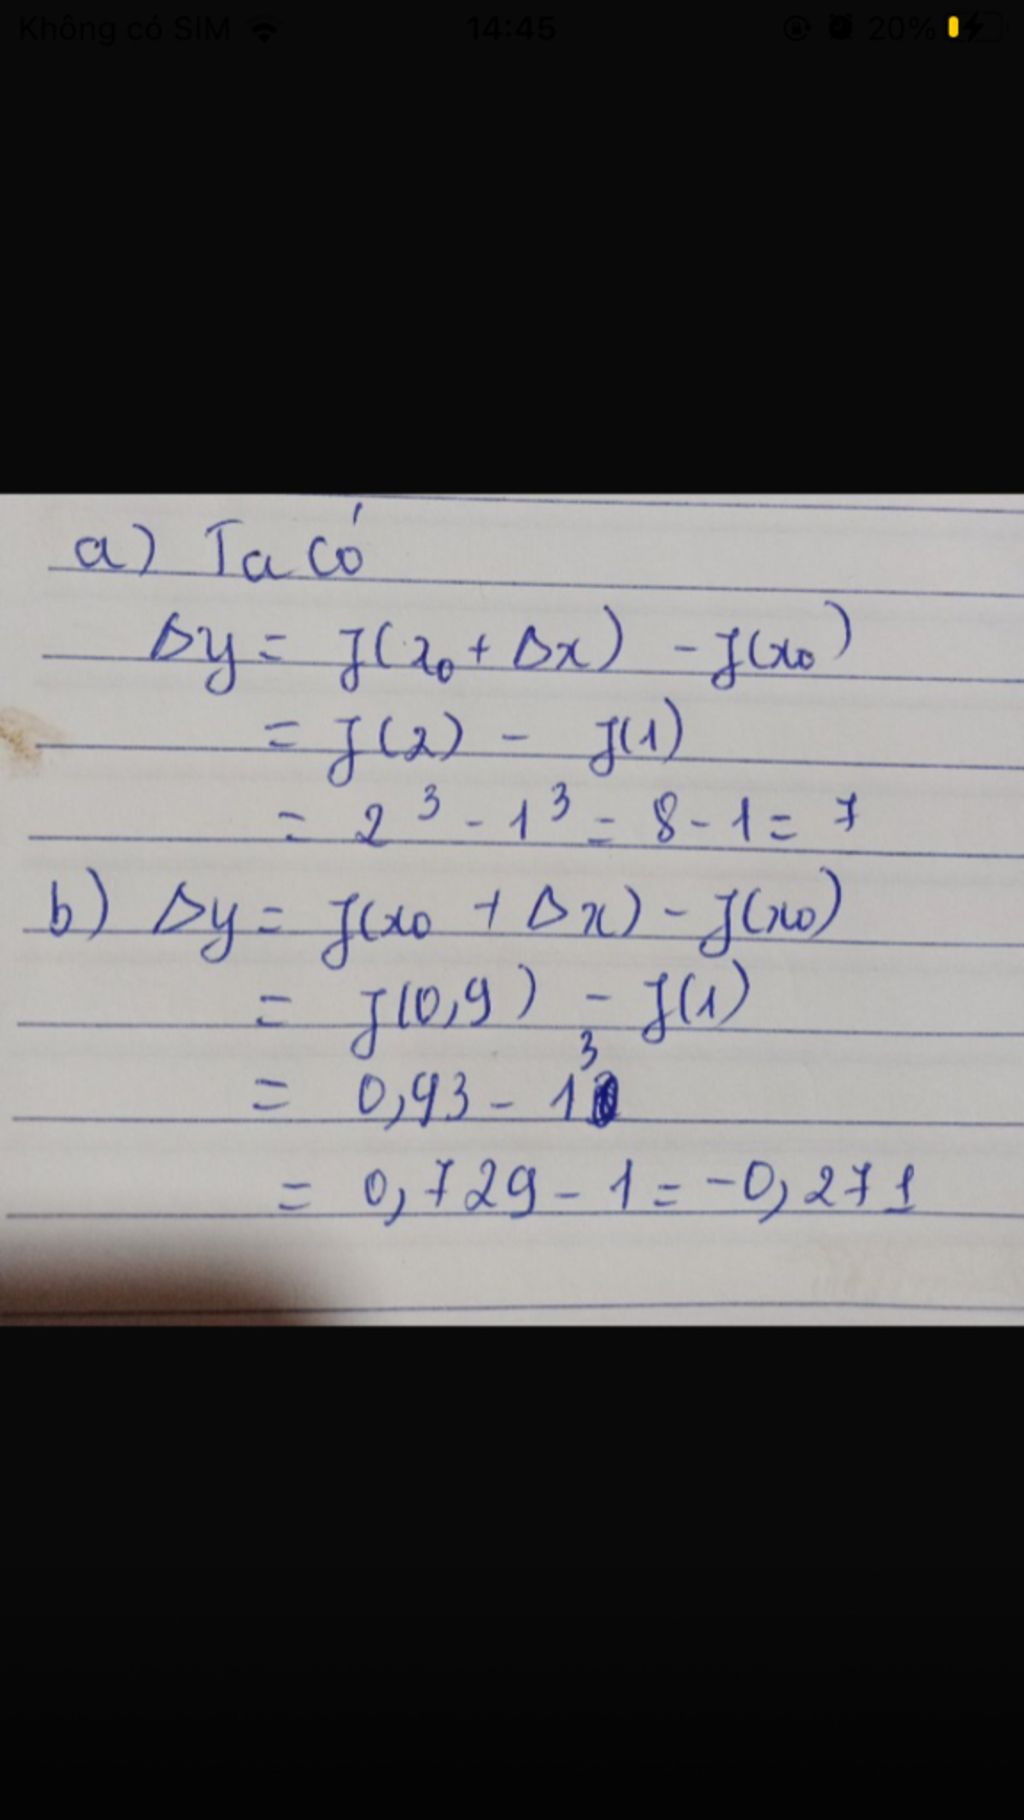 Không có SIM 14:45 20%
a) Ta có
Δy = f(x₀ + Δx) - f(x₀)
= f(2) - f(1)
= 2³ - 1³ = 8 - 1 = 7
b) Δy = f(x₀ + Δx) - f(x₀)
= f(0,9) - f(1)
= 0,93 - 1³
= 0,729 - 1 = -0,271